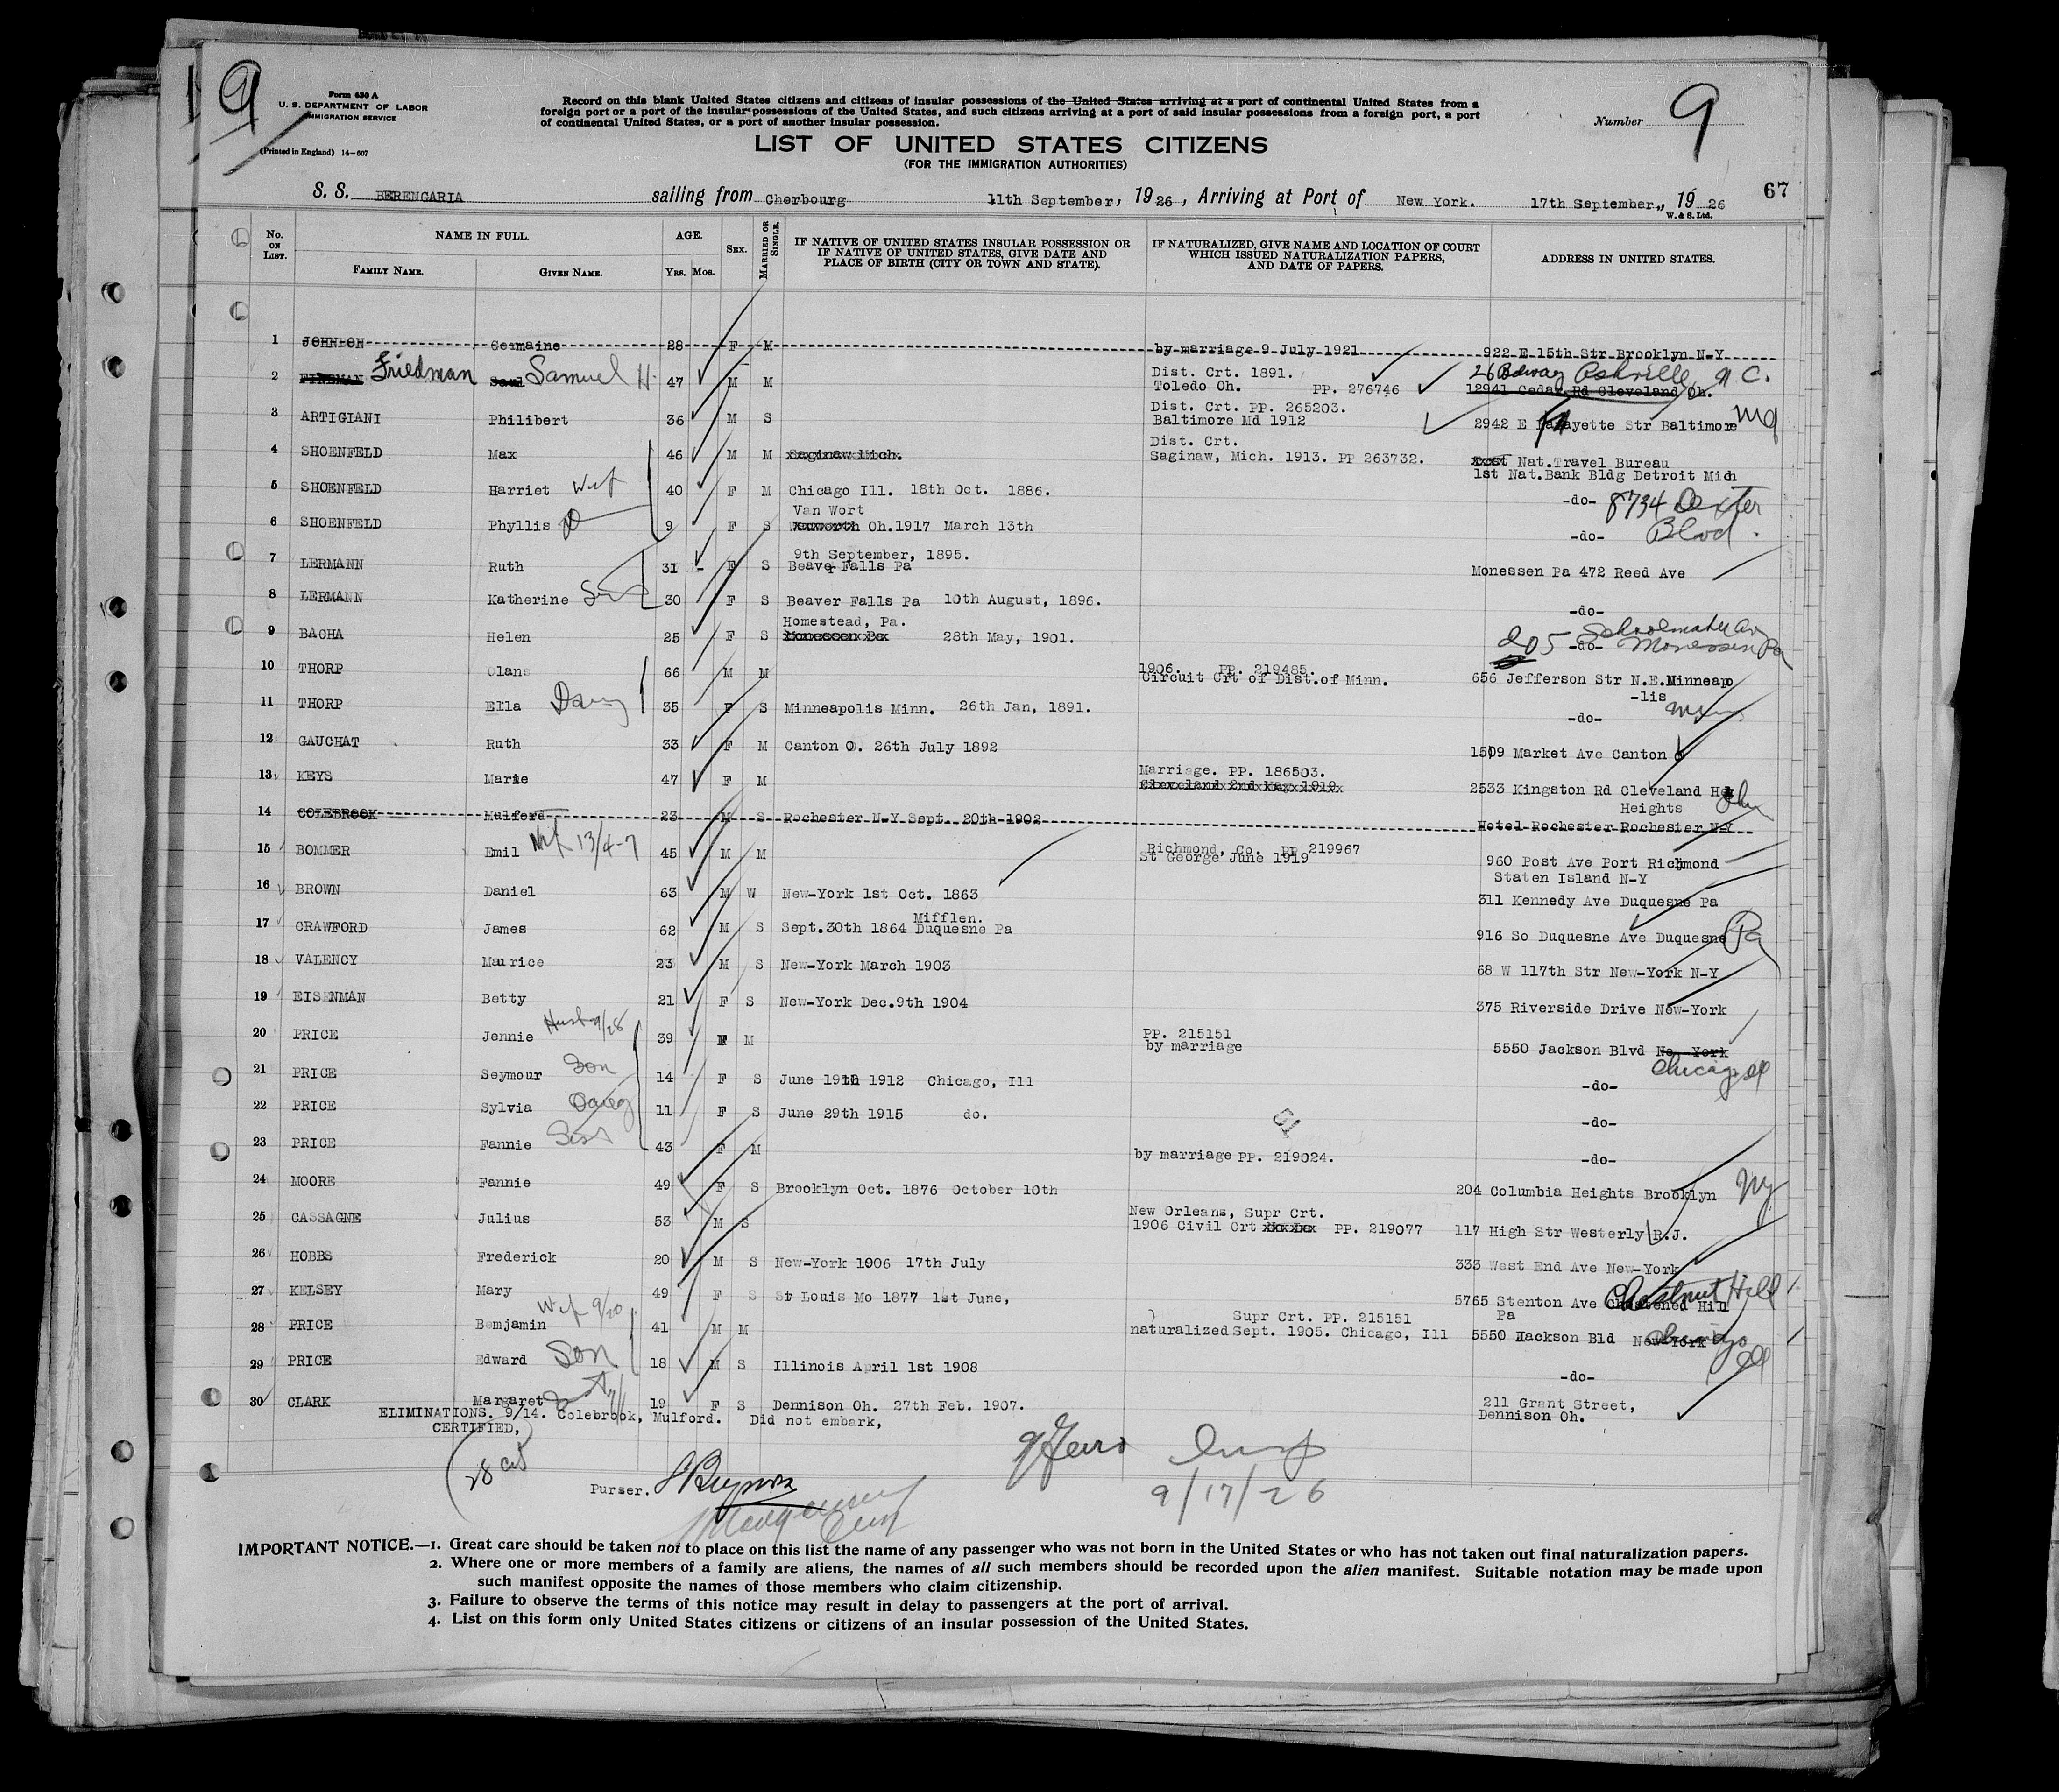 9
Form 630 A
U. S. DEPARTMENT OF LABOR
IMMIGRATION SERVICE
(Printed in England) 14—607
Record on this blank United States citizens and citizens of insular possessions of the United States arriving at a port of continental United States from a
foreign port or a port of the insular possessions of the United States, and such citizens arriving at a port of said insular possessions from a foreign port, a port
of continental United States, or a port of another insular possession.
Number 9
LIST OF UNITED STATES CITIZENS
(FOR THE IMMIGRATION AUTHORITIES)
67
S. S. BERENGARIA sailing from Cherbourg 11th September, 1926, Arriving at Port of New York. 17th September, 1926
W. & S. Ltd.
No. ON LIST. NAME IN FULL. FAMILY NAME. GIVEN NAME. AGE. YRS. MOS. SEX. MARRIED OR SINGLE. IF NATIVE OF UNITED STATES INSULAR POSSESSION OR IF NATIVE OF UNITED STATES, GIVE DATE AND PLACE OF BIRTH (CITY OR TOWN AND STATE). IF NATURALIZED, GIVE NAME AND LOCATION OF COURT WHICH ISSUED NATURALIZATION PAPERS, AND DATE OF PAPERS. ADDRESS IN UNITED STATES.
1 JOHNSON Germaine 28 F M by marriage 9 July 1921 922 E 15th Str Brooklyn N-Y
2 FINEMAN Friedman Saul Samuel H. 47 M M Dist. Crt. 1891. Toledo Oh. PP. 276746 26 Bdway Ashville N.C. 12941 Cedar Rd Cleveland Oh.
3 ARTIGIANI Philibert 36 M S Dist. Crt. PP. 265203. Baltimore Md 1912 2942 E Lafayette Str Baltimore Md
4 SHOENFELD Max 46 M M Saginaw Mich. Dist. Crt. Saginaw, Mich. 1913. PP 263732. Nat.Travel Bureau 1st Nat.Bank Bldg Detroit Mich
5 SHOENFELD Harriet Wif 40 F M Chicago Ill. 18th Oct. 1886. -do- 8734 Dexter Blvd.
6 SHOENFELD Phyllis D 9 F S Van Wort Oh.1917 March 13th -do-
7 LERMANN Ruth 31 - F S 9th September, 1895. Beaver Falls Pa Monessen Pa 472 Reed Ave
8 LERMANN Katherine Sis 30 F S Beaver Falls Pa 10th August, 1896. -do-
9 BACHA Helen 25 F S Homestead, Pa. Monessen Pa 28th May, 1901. -do- 205 Schoonmaker Av Monessen Pa
10 THORP Olans 66 M M 1906. PP. 219485. Circuit Crt of Dist.of Minn. 656 Jefferson Str N.E.Minneapo-lis
11 THORP Ella Daug 35 F S Minneapolis Minn. 26th Jan, 1891. -do- Minn
12 GAUCHAT Ruth 33 F M Canton O. 26th July 1892 1509 Market Ave Canton O
13 KEYS Marie 47 F M Marriage. PP. 186503. Cleveland 2nd May 1919 2533 Kingston Rd Cleveland Heights Ohio
14 COLEBROOK Mulford 23 M S Rochester N-Y Sept. 20th 1902 Hotel Rochester Rochester N-Y
15 BOMMER Emil Wif 13/4-7 45 M M Richmond, Co. PP 219967 St George June 1919 960 Post Ave Port Richmond Staten Island N-Y
16 BROWN Daniel 63 M W New-York 1st Oct. 1863 311 Kennedy Ave Duquesne Pa
17 CRAWFORD James 62 M S Sept.30th 1864 Mifflen. Duquesne Pa 916 So Duquesne Ave Duquesne Pa
18 VALENCY Maurice 23 M S New-York March 1903 68 W 117th Str New-York N-Y
19 EISENMAN Betty 21 F S New-York Dec.9th 1904 375 Riverside Drive New-York
20 PRICE Jennie Husb 9/28 39 F M PP. 215151 by marriage 5550 Jackson Blvd No-York Chicago Ill
21 PRICE Seymour Son 14 F S June 19th 1912 Chicago, Ill -do-
22 PRICE Sylvia Daug 11 F S June 29th 1915 do. -do-
23 PRICE Fannie Sis 43 F M by marriage PP. 219024. -do-
24 MOORE Fannie 49 F S Brooklyn Oct. 1876 October 10th 204 Columbia Heights Brooklyn NY
25 CASSAGNE Julius 53 M S New Orleans, Supr Crt. 1906 Civil Crt PP. 219077 117 High Str Westerly R.J.
26 HOBBS Frederick 20 M S New-York 1906 17th July 333 West End Ave New-York
27 KELSEY Mary 49 F S St Louis Mo 1877 1st June, 5765 Stenton Ave Chestnut Hill Chastened Hill Pa
28 PRICE Bemjamin Wif 9/20 41 M M Supr Crt. PP. 215151 naturalized Sept. 1905. Chicago, Ill 5550 Jackson Bld New-York Chicago Ill
29 PRICE Edward Son 18 M S Illinois April 1st 1908 -do-
30 CLARK Margaret 19 F S Dennison Oh. 27th Feb. 1907. 211 Grant Street, Dennison Oh.
ELIMINATIONS. 9/14. Colebrook, Mulford. Did not embark,
CERTIFIED,
28
Purser.
Insp
9/17/26
IMPORTANT NOTICE.—1. Great care should be taken not to place on this list the name of any passenger who was not born in the United States or who has not taken out final naturalization papers.
2. Where one or more members of a family are aliens, the names of all such members should be recorded upon the alien manifest. Suitable notation may be made upon
such manifest opposite the names of those members who claim citizenship.
3. Failure to observe the terms of this notice may result in delay to passengers at the port of arrival.
4. List on this form only United States citizens or citizens of an insular possession of the United States.